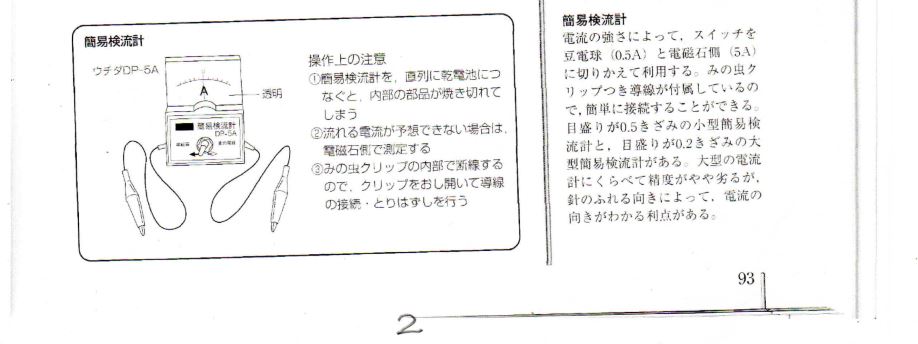 簡易検流計
ウチダDP-5A
透明
A
簡易検流計
DP-5A
操作上の注意
①簡易検流計を，直列に乾電池につ
なぐと，内部の部品が焼き切れて
しまう
②流れる電流が予想できない場合は，
電磁石側で測定する
③みの虫クリップの内部で断線する
ので，クリップをおし開いて導線
の接続・とりはずしを行う
簡易検流計
電流の強さによって，スイッチを
豆電球（0.5A）と電磁石側（5A）
に切りかえて利用する。みの虫ク
リップつき導線が付属しているの
で，簡単に接続することができる。
目盛りが0.5きざみの小型簡易検
流計と，目盛りが0.2きざみの大
型簡易検流計がある。大型の電流
計にくらべて精度がやや劣るが，
針のふれる向きによって，電流の
向きがわかる利点がある。
93
2